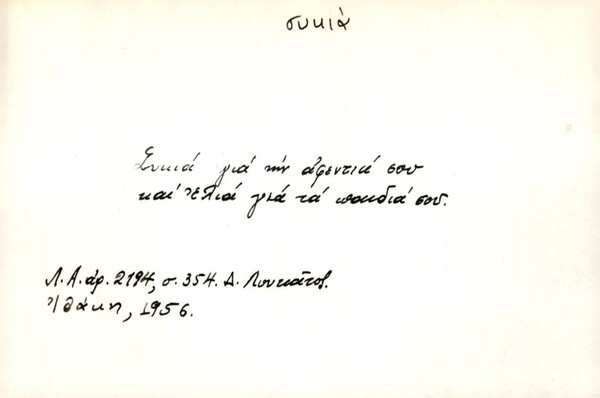 συκιά
Συκιά γιά τήν ἀφεντιά σου
καί ἐλιά γιά τά παιδιά σου.
Λ.Α. ἀρ. 2194, σ. 354. Δ. Λουκᾶτος.
Ἰθάκη, 1956.